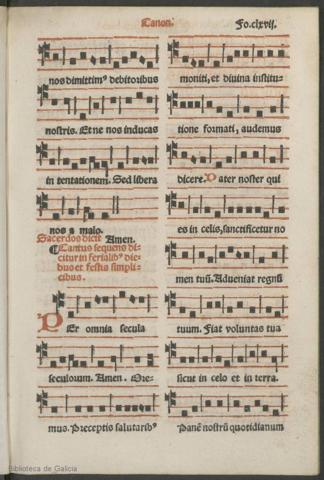 Canon.
Fo.clxvij.
nos dimittimꝰ debitoribus
nostris. Et ne nos inducas
in tentationem. Sed libera
nos a malo.
Sacerdos dicit Amen.
¶ Cantus sequens di-
citur in ferialibꝰ die-
bus et festis simpli-
cibus.
PEr omnia secula
seculorum. Amen. Ore-
mus. Preceptis salutaribꝰ
moniti, et diuina institu-
tione formati, audemus
dicere. Pater noster qui
es in celis, sanctificetur no
men tuū. Adueniat regnū
tuum. Fiat voluntas tua
sicut in celo et in terra.
Panē nostrū quotidianum
Biblioteca de Galicia